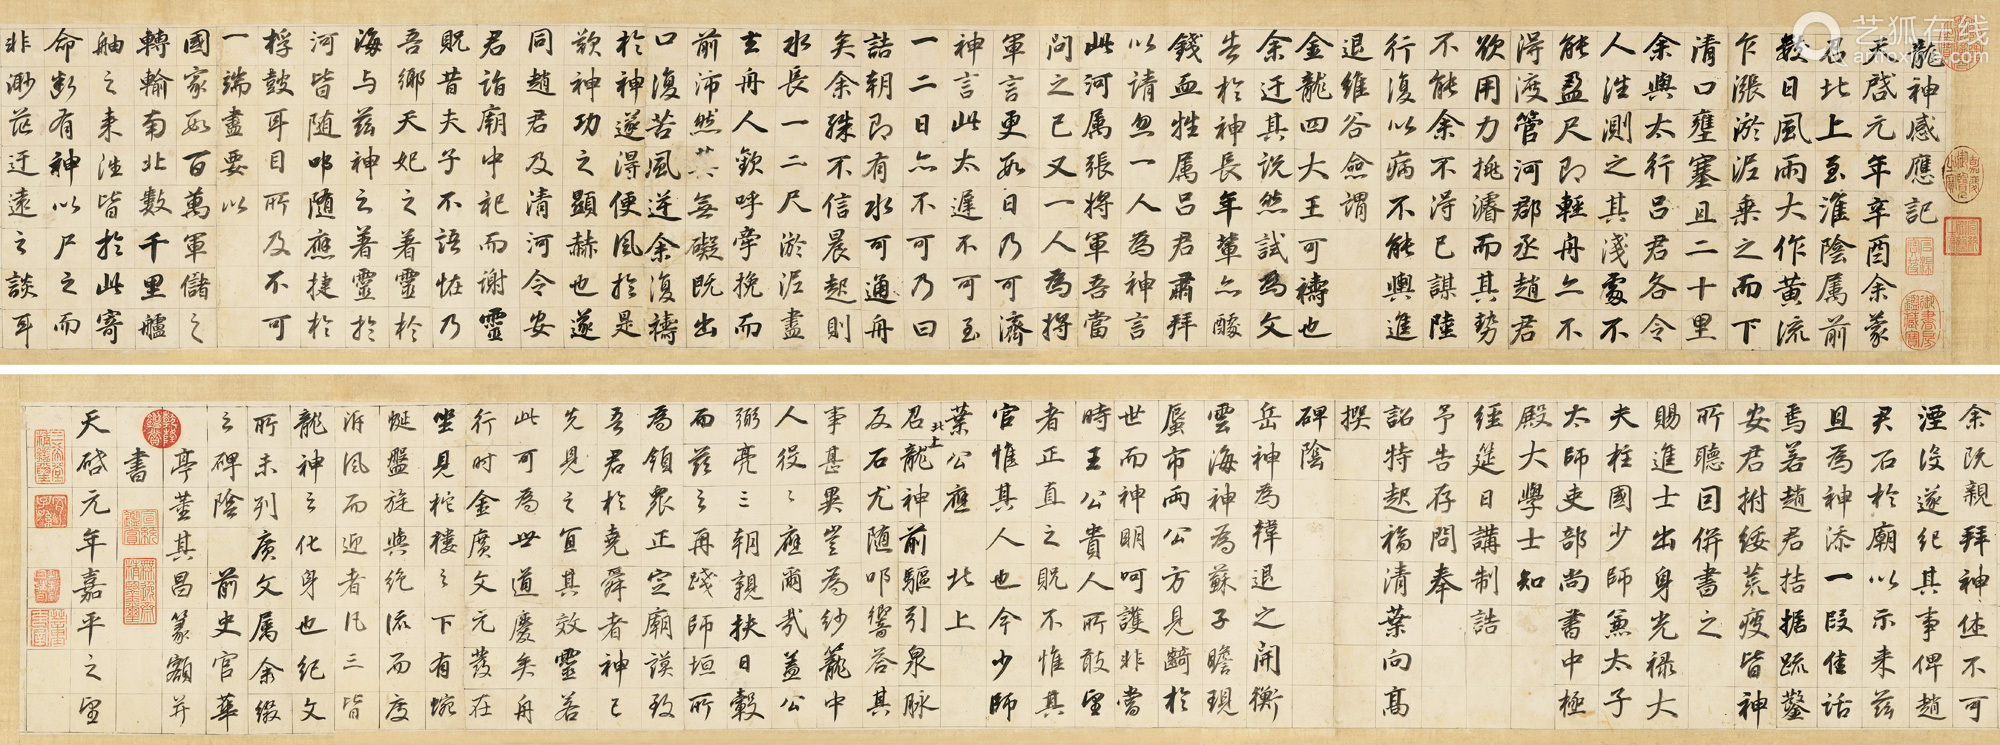 龍神感應記
天啓元年辛酉余蒙
召北上至淮陰属前
數日風雨大作黄流
乍漲淤泥乗之而下
清口壅塞且二十里
余與太行吕君各令
人徃測之其淺處不
能盈尺即輕舟亦不
得渡管河郡丞趙君
欲用力挑濬而其勢
不能余不得已謀陸
行復以病不能輿進
退維谷僉謂
金龍四大王可禱也
余迂其説然試為文
告於神長年軰亦醵
錢血牲属吕君肅拜
以請忽一人為神言
此河属張將軍吾當
問之已又一人為將
軍言更數日乃可濟
神言此太遲不可至
一二日亦不可乃曰
詰朝即有水可通舟
矣余殊不信晨起則
水長一二尺淤泥盡
主舟人歡呼牽挽而
前沛然其無礙既出
口復苦風逆余復禱
於神遂得便風於是
歎神功之顯赫也遂
同趙君及清河令安
君詣廟中祀而謝靈
貺昔夫子不語怪乃
吾鄉天妃之著靈於
海与茲神之著靈於
河皆随叩随應捷於
桴鼓耳目所及不可
一端盡要以
國家數百萬軍儲之
轉輸南北數千里艫
舳之来徃皆於此寄
命斷有神以尸之而
非渺茫迂遠之談耳
余既親拜神庥不可
湮没遂纪其事俾趙
君石於廟以示来茲
且為神添一段佳話
焉若趙君拮据疏鑿
安君拊綏荒疲皆神
所聽因併書之
賜進士出身光禄大
夫柱國少師兼太子
太師吏部尚書中極
殿大學士知
經筵日講制誥
予告存問奉
詔特起福清葉向髙
撰
碑陰
岳神為韓退之開衡
雲海神為蘇子瞻現
蜃市两公方見齮於
世而神明呵護非當
時王公貴人所敢望
者正直之貺不惟其
官惟其人也今少師
葉公應 北上
召龍神前驅引泉脉
反石尤随叩響荅其
事甚異豈為紗籠中
人役役應爾哉盖公
弼亮三朝親扶日轂
而茲之再踐師垣所
為領衆正定廟謨致
吾君於堯舜者神已
先見之宜其效靈若
此可為世道慶矣舟
行时金廣文元發在
坐見柁樓之下有蜿
蜒盤旋與絶流而度
泝風而迎者凡三皆
龍神之化身也纪文
所未列廣文属余綴
之碑陰 前史官華
亭董其昌篆額并
書
天啓元年嘉平之望
艺狐在线